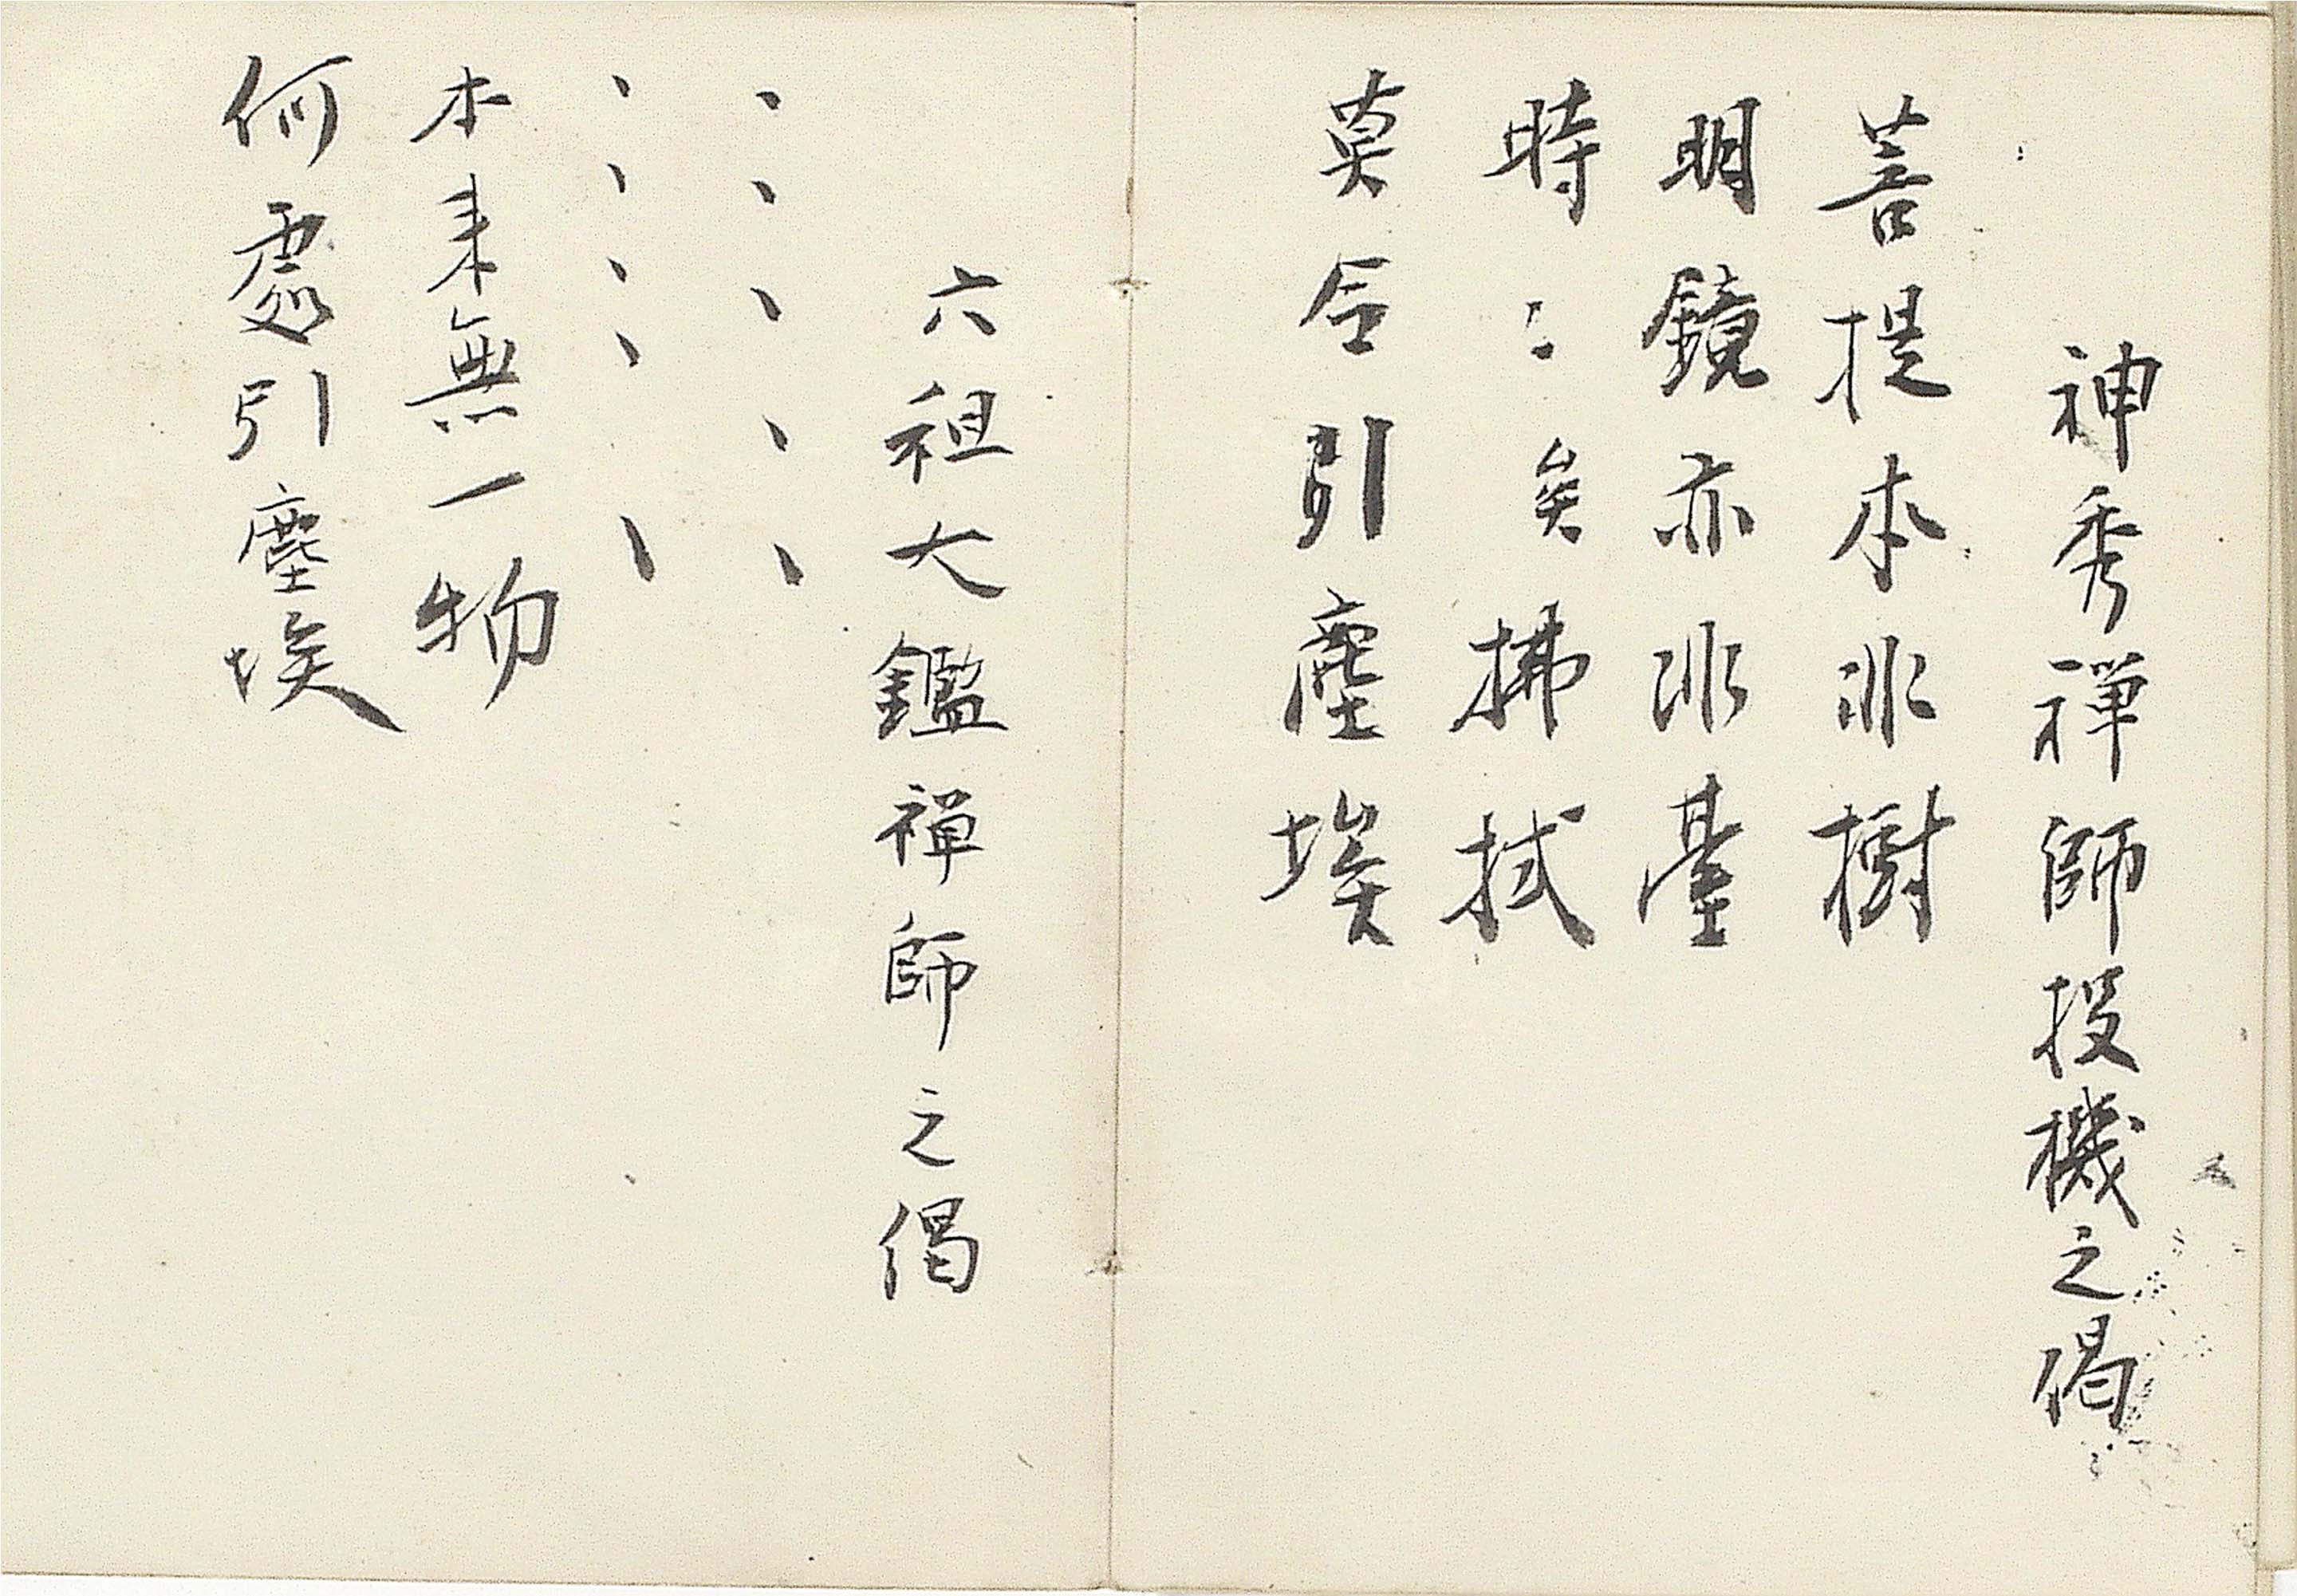 神秀禅師投機之偈
菩提本非樹
明鏡亦非臺
時〻矣拂拭
莫令引塵埃
六祖大鑑禅師之偈
、、、、、
、、、、、
本来無一物
何處引塵埃